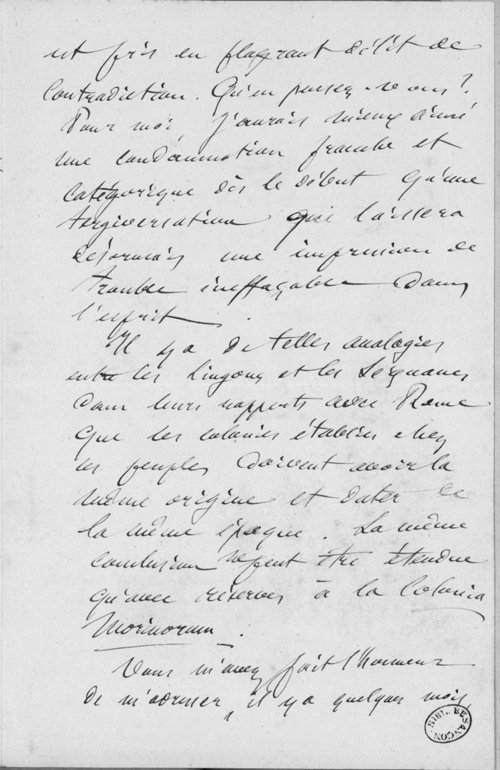 est pris en flagrant délit de
contradiction. Qu'en pensez-vous?
Pour moi, j'aurais mieux aimé
une condamnation franche et
catégorique dès le début qu'une
tergiversation qui laissera
désormais une impression de
trouble ineffaçable dans
l'esprit.
Il y a de telles analogies
entre les Lingons et les Séquanes
dans leurs rapports avec Rome
que les colonies établies chez
ces peuples doivent avoir la
même origine et dater de
la même époque. La même
conclusion ne peut être étendue
qu'avec réserves à la Colonia
Morinorum.
Vous m'avez fait l'honneur
de m'adresser, il y a quelques mois,
BIBL. BESANÇON